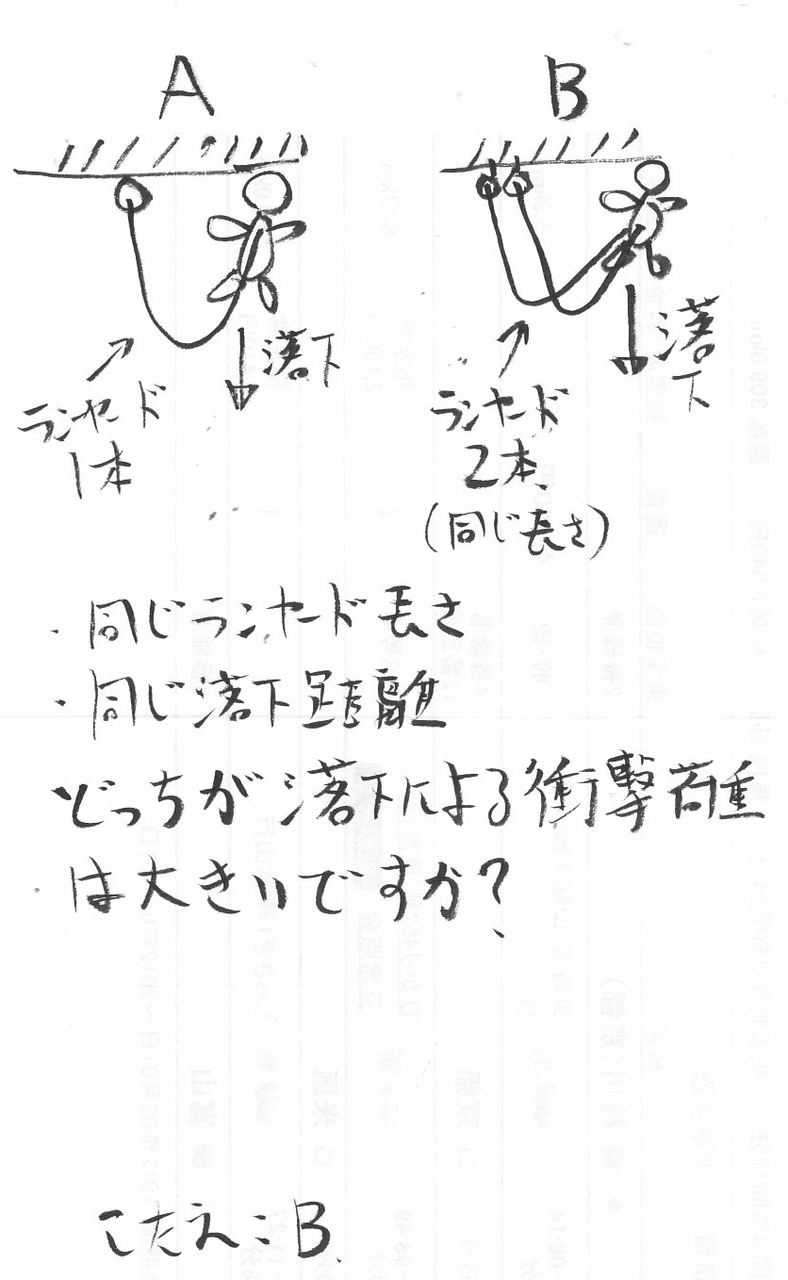 A
B
落下
ランヤード
1本
落下
ランヤード
2本、
(同じ長さ)
・同じランヤード長さ
・同じ落下距離
どっちが落下による衝撃荷重
は大きいですか?
こたえ:B